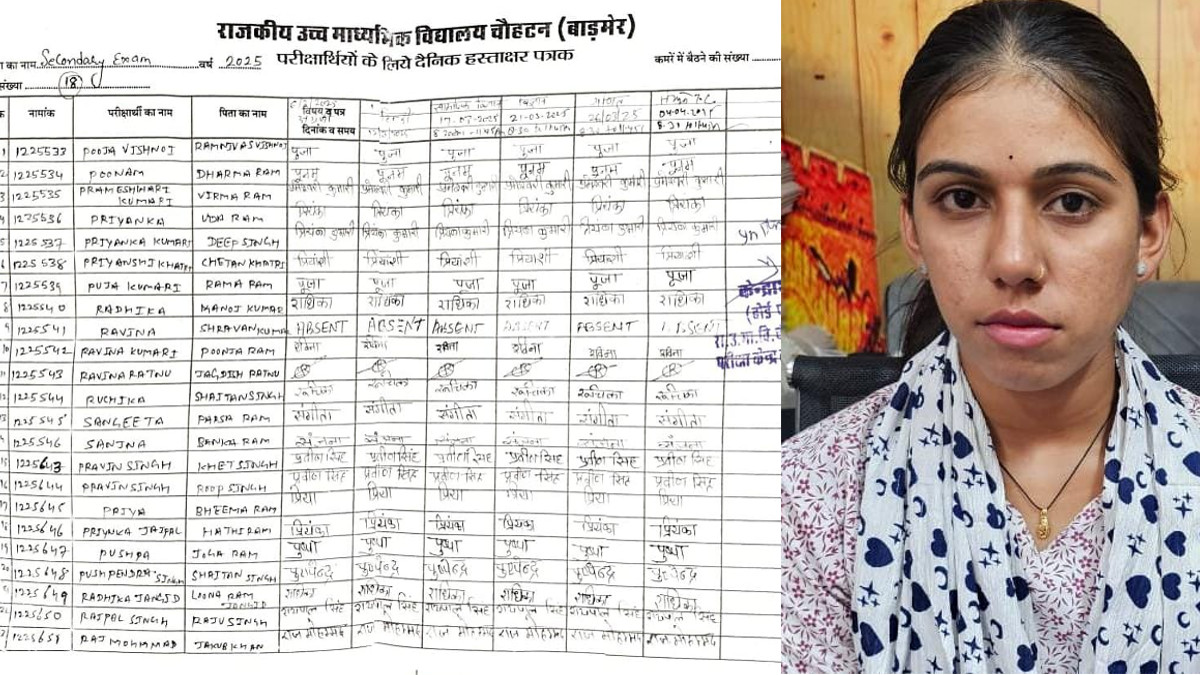 राजकीय उच्च माध्यमिक विद्यालय चौहटन (बाड़मेर)
का नाम Secondary Exam वर्ष 2025 परीक्षार्थियों के लिये दैनिक हस्ताक्षर पत्रक कमरें में बैठने की संख्या
संख्या 18
नामांक परीक्षार्थी का नाम पिता का नाम विषय व पत्र दिनांक व समय
हिन्दी सामाजिक विज्ञान विज्ञान गणित
21-03-2025 26/03/25
1225533 POOJA VISHNOI RAMNIVAS VISHNOI पूजा पूजा पूजा पूजा पूजा पूजा
2 1225534 POONAM DHARMA RAM पूनम पूनम पूनम पूनम पूनम पूनम
3 1225535 PRAMESHWARI KUMARI VIRMA RAM
1225536 PRIYANKA UDA RAM प्रियंका प्रियंका प्रियंका प्रियंका प्रियंका प्रियंका
5 1225537 PRIYANKA KUMARI DEEP SINGH प्रियंका कुमारी प्रियंका कुमारी प्रियंका कुमारी प्रियंका कुमारी प्रियंका कुमारी प्रियंका कुमारी
6 1225538 PRIYANSHI KHATRI CHETAN KHATRI प्रियांशी प्रियांशी प्रियांशी प्रियांशी प्रियांशी प्रियांशी
7 1225539 PUJA KUMARI RAMA RAM पूजा पूजा पूजा पूजा पूजा पूजा
8 1225540 RADHIKA MANOJ KUMAR राधिका राधिका राधिका राधिका राधिका राधिका
9 1225541 RAVINA SHRAVAN KUMAR ABSENT ABSENT ABSENT ABSENT ABSENT ABSENT
10 1225542 RAVINA KUMARI POONJA RAM रविना रविना रविना रविना रविना रविना
11 1225543 RAVINA RATNU JAGDISH RATNU
1225544 RUCHIKA SHAITAN SINGH रूचिका रूचिका रूचिका रूचिका रूचिका रूचिका
1225545 SANGEETA PARSA RAM संगीता संगीता संगीता संगीता संगीता संगीता
1225546 SANJNA BANKA RAM संजना संजना संजना संजना संजना संजना
15 1225643 PRAVIN SINGH KHET SINGH प्रवीण सिंह प्रवीण सिंह प्रवीण सिंह प्रवीण सिंह प्रवीण सिंह प्रवीण सिंह
16 1225644 PRAVIN SINGH ROOP SINGH प्रवीण सिंह प्रवीण सिंह प्रवीण सिंह प्रवीण सिंह प्रवीण सिंह प्रवीण सिंह
1225645 PRIYA BHEEMA RAM प्रिया प्रिया प्रिया प्रिया प्रिया प्रिया
1225646 PRIYNKA JAJPAL HATHI RAM प्रियंका प्रियंका प्रियंका प्रियंका प्रियंका प्रियंका
19 1225647 PUSHPA JOGA RAM पुष्पा पुष्पा पुष्पा पुष्पा पुष्पा पुष्पा
20 1225648 PUSHPENDRA SINGH SHAITAN SINGH पुष्पेन्द्र पुष्पेन्द्र पुष्पेन्द्र पुष्पेन्द्र पुष्पेन्द्र पुष्पेन्द्र
1225649 RADHIKA JANGID LOONA RAM JANGID राधिका राधिका राधिका राधिका राधिका राधिका
1225650 RAJPAL SINGH RAJU SINGH राजपाल सिंह राजपाल सिंह राजपाल सिंह राजपाल सिंह राजपाल सिंह राजपाल सिंह
1225651 RAJ MOHMMAD JAKUB KHAN राज मोहम्मद राज मोहम्मद राज मोहम्मद राज मोहम्मद राज मोहम्मद राज मोहम्मद
परीक्षा केन्द्र